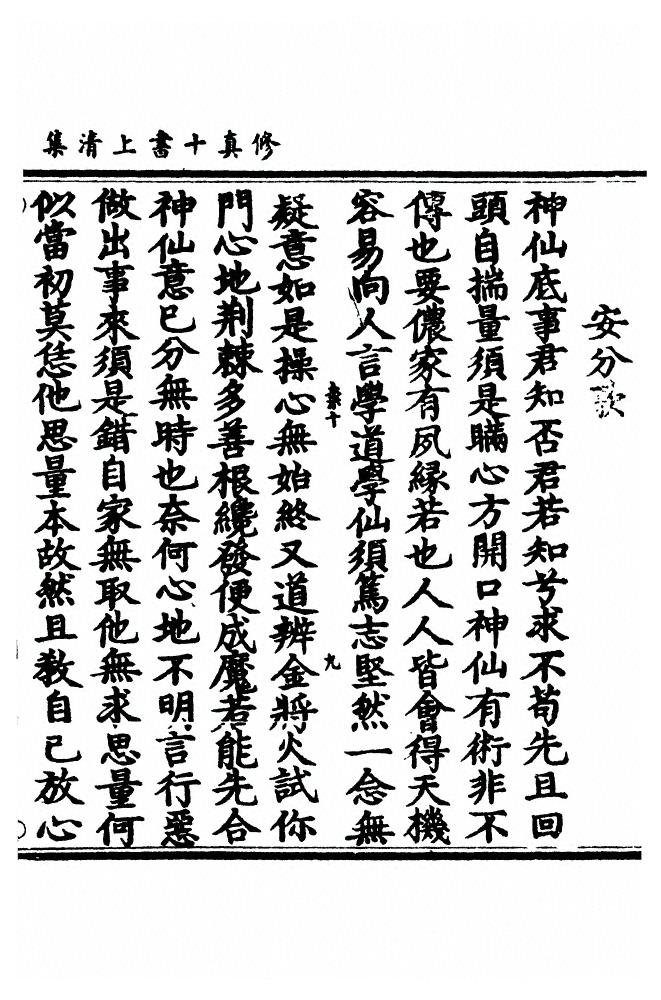 修真十書上清集
安分歌
神仙底事君知否君若知兮求不苟先且回
頭自揣量須是瞞心方開口神仙有術非不
傳也要儂家有夙緣若也人人皆會得天機
容易向人言學道學仙須篤志堅然一念無
柰十
九
疑意如是操心無始終又道辨金將火試你
門心地荆棘多善根纔發便成魔若能先合
神仙意已分無時也奈何心地不明言行惡
做出事來須是錯自家無取他無求思量何
似當初莫恁他思量本故然且教自己放心